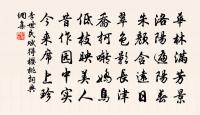 華林滿芳景
洛陽遍陽春
朱顏含遠日
翠色影長津
喬柯囀嬌鳥
低枝映美人
昔作園中實
今來席上珍
李世民賦得櫻桃詞典
網集